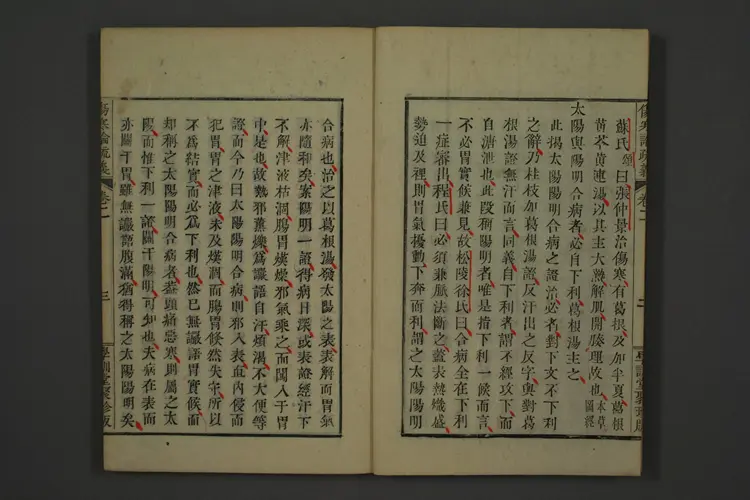 蘇氏頌曰張仲景治傷寒有葛根及加半夏葛根
黃芩黃連湯以其主大熱解肌開腠理故也本草圖經
太陽與陽明合病者必自下利葛根湯主之
此揭太陽陽明合病之證治必者對下文不下利
之辭乃桂枝加葛根湯證反汗出之反字與對葛
根湯證無汗而言同義自下利者謂不經攻下而
自溏泄也此段稱陽明者唯是指下利一候而言
不必胃實候兼見故松陵徐氏曰合病全在下利
一症審出程氏曰必須兼脉法斷之蓋表熱熾盛
勢迫及裡則胃氣擾動下奔而利謂之太陽陽明
合病也治之以葛根湯發太陽之表表解而胃氣
亦隨和矣案陽明一證得病日深或表證經汗下
不解津液枯涸腸胃燥邪氣乘之而闖入于胃
中是也故熱邪薰爍為讝語自汗煩渴不大便等
證而今乃曰太陽陽明合病則邪入表直內侵而
犯胃胃之津液未及燥涸而腸胃倏然失守所以
不為結實而必為下利也然已無讝語胃實候而
却稱之太陽陽明合病者蓋頭痛惡寒則屬之太
陽而惟下利一證關干陽明可知也夫病在表而
亦關干胃雖無讝語腹滿猶得稱之太陽陽明矣
傷寒論疏義
卷二
三